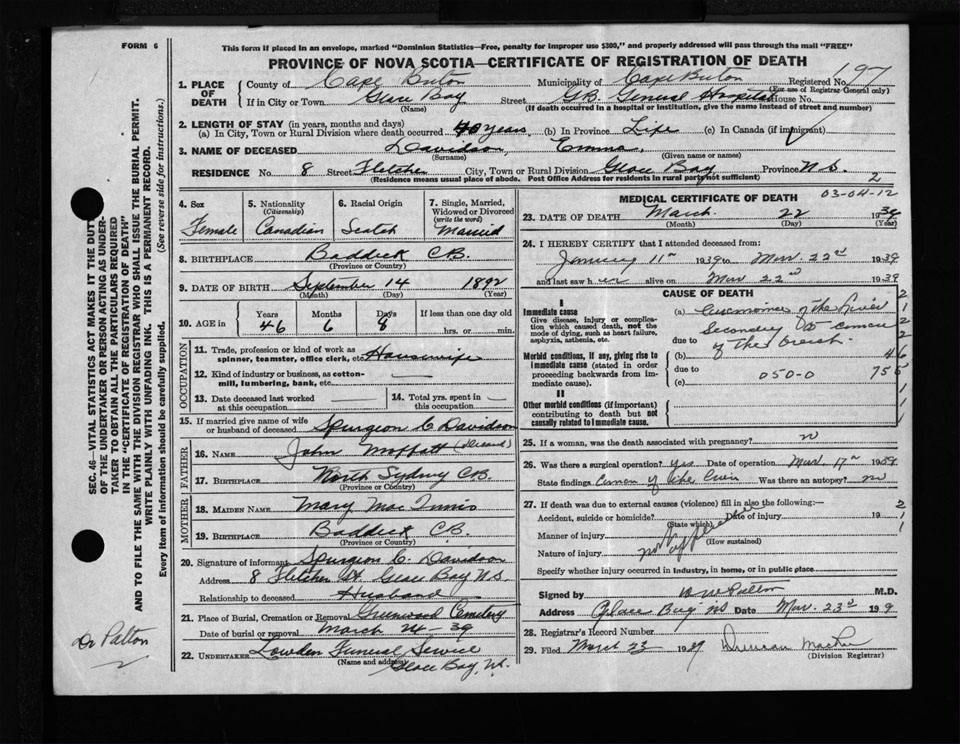 FORM 6
This form if placed in an envelope, marked "Dominion Statistics—Free, penalty for improper use $300," and properly addressed will pass through the mail "FREE"
PROVINCE OF NOVA SCOTIA—CERTIFICATE OF REGISTRATION OF DEATH
197
1. PLACE OF DEATH County of Cape Breton Municipality of Cape Breton Registered No.
(For use of Registrar General only)
If in City or Town Glace Bay Street G.B. General Hospital House No.
(Name) (If death occurred in a hospital or institution, give the name instead of street and number)
2. LENGTH OF STAY (in years, months and days)
(a) In City, Town or Rural Division where death occurred 40 years (b) In Province Life (c) In Canada (if immigrant)
3. NAME OF DECEASED Davidson, Emma,
(Surname) (Given name or names)
RESIDENCE No. 8 Street Fletcher City, Town or Rural Division Glace Bay Province N.S.
(Residence means usual place of abode. Post Office Address for residents in rural parts not sufficient) 2
4. Sex Female
5. Nationality (Citizenship) Canadian
6. Racial Origin Scotch
7. Single, Married, Widowed or Divorced (write the word) Married
8. BIRTHPLACE Baddeck C.B.
(Province or Country)
9. DATE OF BIRTH September 14 1892
(Month) (Day) (Year)
10. AGE in Years Months Days If less than one day old
46 6 8 hrs. or min.
OCCUPATION
11. Trade, profession or kind of work as spinner, teamster, office clerk, etc. Housewife
12. Kind of industry or business, as cotton-mill, lumbering, bank, etc. —
13. Date deceased last worked at this occupation —
14. Total yrs. spent in this occupation —
15. If married give name of wife or husband of deceased Spurgeon C. Davidson
FATHER
16. NAME John Moffatt (Deceased)
17. BIRTHPLACE North Sydney C.B.
(Province or Country)
MOTHER
18. MAIDEN NAME Mary Mac
19. BIRTHPLACE Baddeck C.B.
(Province or Country)
20. Signature of informant Spurgeon C. Davidson
Address 8 Fletcher St. Glace Bay N.S.
Relationship to deceased Husband
21. Place of Burial, Cremation or Removal Greenwood Cemetery
Date of burial or removal March 24 - 39
22. UNDERTAKER Lowden Funeral Service
(Name and address) Glace Bay, N.S.
MEDICAL CERTIFICATE OF DEATH
03-04-12
23. DATE OF DEATH March 22 1939
(Month) (Day) (Year)
24. I HEREBY CERTIFY that I attended deceased from:
January 11th 1939 to Mar. 22nd 1939
and last saw her alive on Mar 22nd 1939
CAUSE OF DEATH
I
Immediate cause
Give disease, injury or complication which caused death, not the mode of dying, such as heart failure, asphyxia, asthenia, etc.
(a) Carcinoma of the Liver
Secondary to cancer
due to of the breast
Morbid conditions, if any, giving rise to immediate cause (stated in order proceeding backwards from immediate cause).
(b) 46
due to 050-0 755
(c)
II
Other morbid conditions (if important) contributing to death but not causally related to immediate cause.
25. If a woman, was the death associated with pregnancy? no
26. Was there a surgical operation? Yes Date of operation Mar. 17th 1939
State findings Cancer of the Liver Was there an autopsy? no
27. If death was due to external causes (violence) fill in also the following:—
Accident, suicide or homicide? Date of injury 19
(State which)
Manner of injury
(How sustained)
Nature of injury not applicable
Specify whether injury occurred in industry, in home, or in public place
Signed by Patton M.D.
Address Glace Bay NS Date Mar. 23rd 1939
28. Registrar's Record Number
29. Filed March 23 1939 Duncan
(Division Registrar)
SEC. 46—VITAL STATISTICS ACT MAKES IT THE DUTY OF THE UNDERTAKER OR PERSON ACTING AS UNDERTAKER TO OBTAIN ALL THE PARTICULARS REQUIRED IN THE "CERTIFICATE OF REGISTRATION OF DEATH" AND TO FILE THE SAME WITH THE DIVISION REGISTRAR WHO SHALL ISSUE THE BURIAL PERMIT.
WRITE PLAINLY WITH UNFADING INK. THIS IS A PERMANENT RECORD.
Every item of information should be carefully supplied. (See reverse side for instructions.)
Dr Patton